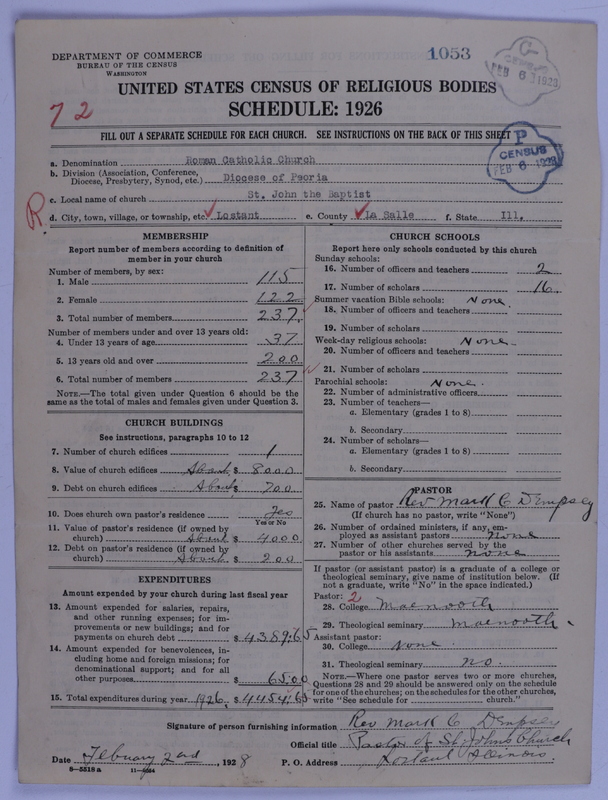 DEPARTMENT OF COMMERCE
BUREAU OF THE CENSUS
WASHINGTON
1053
C
CENSUS
FEB 6 1928
72
UNITED STATES CENSUS OF RELIGIOUS BODIES
SCHEDULE: 1926
FILL OUT A SEPARATE SCHEDULE FOR EACH CHURCH. SEE INSTRUCTIONS ON THE BACK OF THIS SHEET
P
CENSUS
FEB 6 1928
a. Denomination Roman Catholic Church
b. Division (Association, Conference, Diocese, Presbytery, Synod, etc.) Diocese of Peoria
c. Local name of church St. John the Baptist
R
d. City, town, village, or township, etc. Lostant e. County La Salle f. State Ill.
MEMBERSHIP
Report number of members according to definition of member in your church
Number of members, by sex:
1. Male 115
2. Female 122
3. Total number of members 237
Number of members under and over 13 years old:
4. Under 13 years of age 37
5. 13 years old and over 200
6. Total number of members 237
NOTE.—The total given under Question 6 should be the same as the total of males and females given under Question 3.
CHURCH BUILDINGS
See instructions, paragraphs 10 to 12
7. Number of church edifices 1
8. Value of church edifices About $ 8000
9. Debt on church edifices About $ 700
10. Does church own pastor's residence Yes
Yes or No
11. Value of pastor's residence (if owned by church) About $ 4000
12. Debt on pastor's residence (if owned by church) About $ 200
EXPENDITURES
Amount expended by your church during last fiscal year
13. Amount expended for salaries, repairs, and other running expenses; for improvements or new buildings; and for payments on church debt $ 4389.65
14. Amount expended for benevolences, including home and foreign missions; for denominational support; and for all other purposes $ 65.00
15. Total expenditures during year 1926 $ 4454.65
CHURCH SCHOOLS
Report here only schools conducted by this church
Sunday schools:
16. Number of officers and teachers 2
17. Number of scholars 16
Summer vacation Bible schools: None
18. Number of officers and teachers
19. Number of scholars
Week-day religious schools: None
20. Number of officers and teachers
21. Number of scholars
Parochial schools: None
22. Number of administrative officers
23. Number of teachers—
a. Elementary (grades 1 to 8)
b. Secondary
24. Number of scholars—
a. Elementary (grades 1 to 8)
b. Secondary
PASTOR
25. Name of pastor Rev Mark C Dempsey
(If church has no pastor, write "None")
26. Number of ordained ministers, if any, employed as assistant pastors none
27. Number of other churches served by the pastor or his assistants none
If pastor (or assistant pastor) is a graduate of a college or theological seminary, give name of institution below. (If not a graduate, write "No" in the space indicated.)
Pastor: 2
28. College Maenooth
29. Theological seminary Maenooth
Assistant pastor:
30. College None
31. Theological seminary no
NOTE.—Where one pastor serves two or more churches, Questions 28 and 29 should be answered only on the schedule for one of the churches; on the schedules for the other churches, write "See schedule for ........ church."
Signature of person furnishing information Rev Mark C Dempsey
Official title Pastor of St. Johns Church
Date February 2nd, 1928 P. O. Address Lostant Illinois
8—5518a